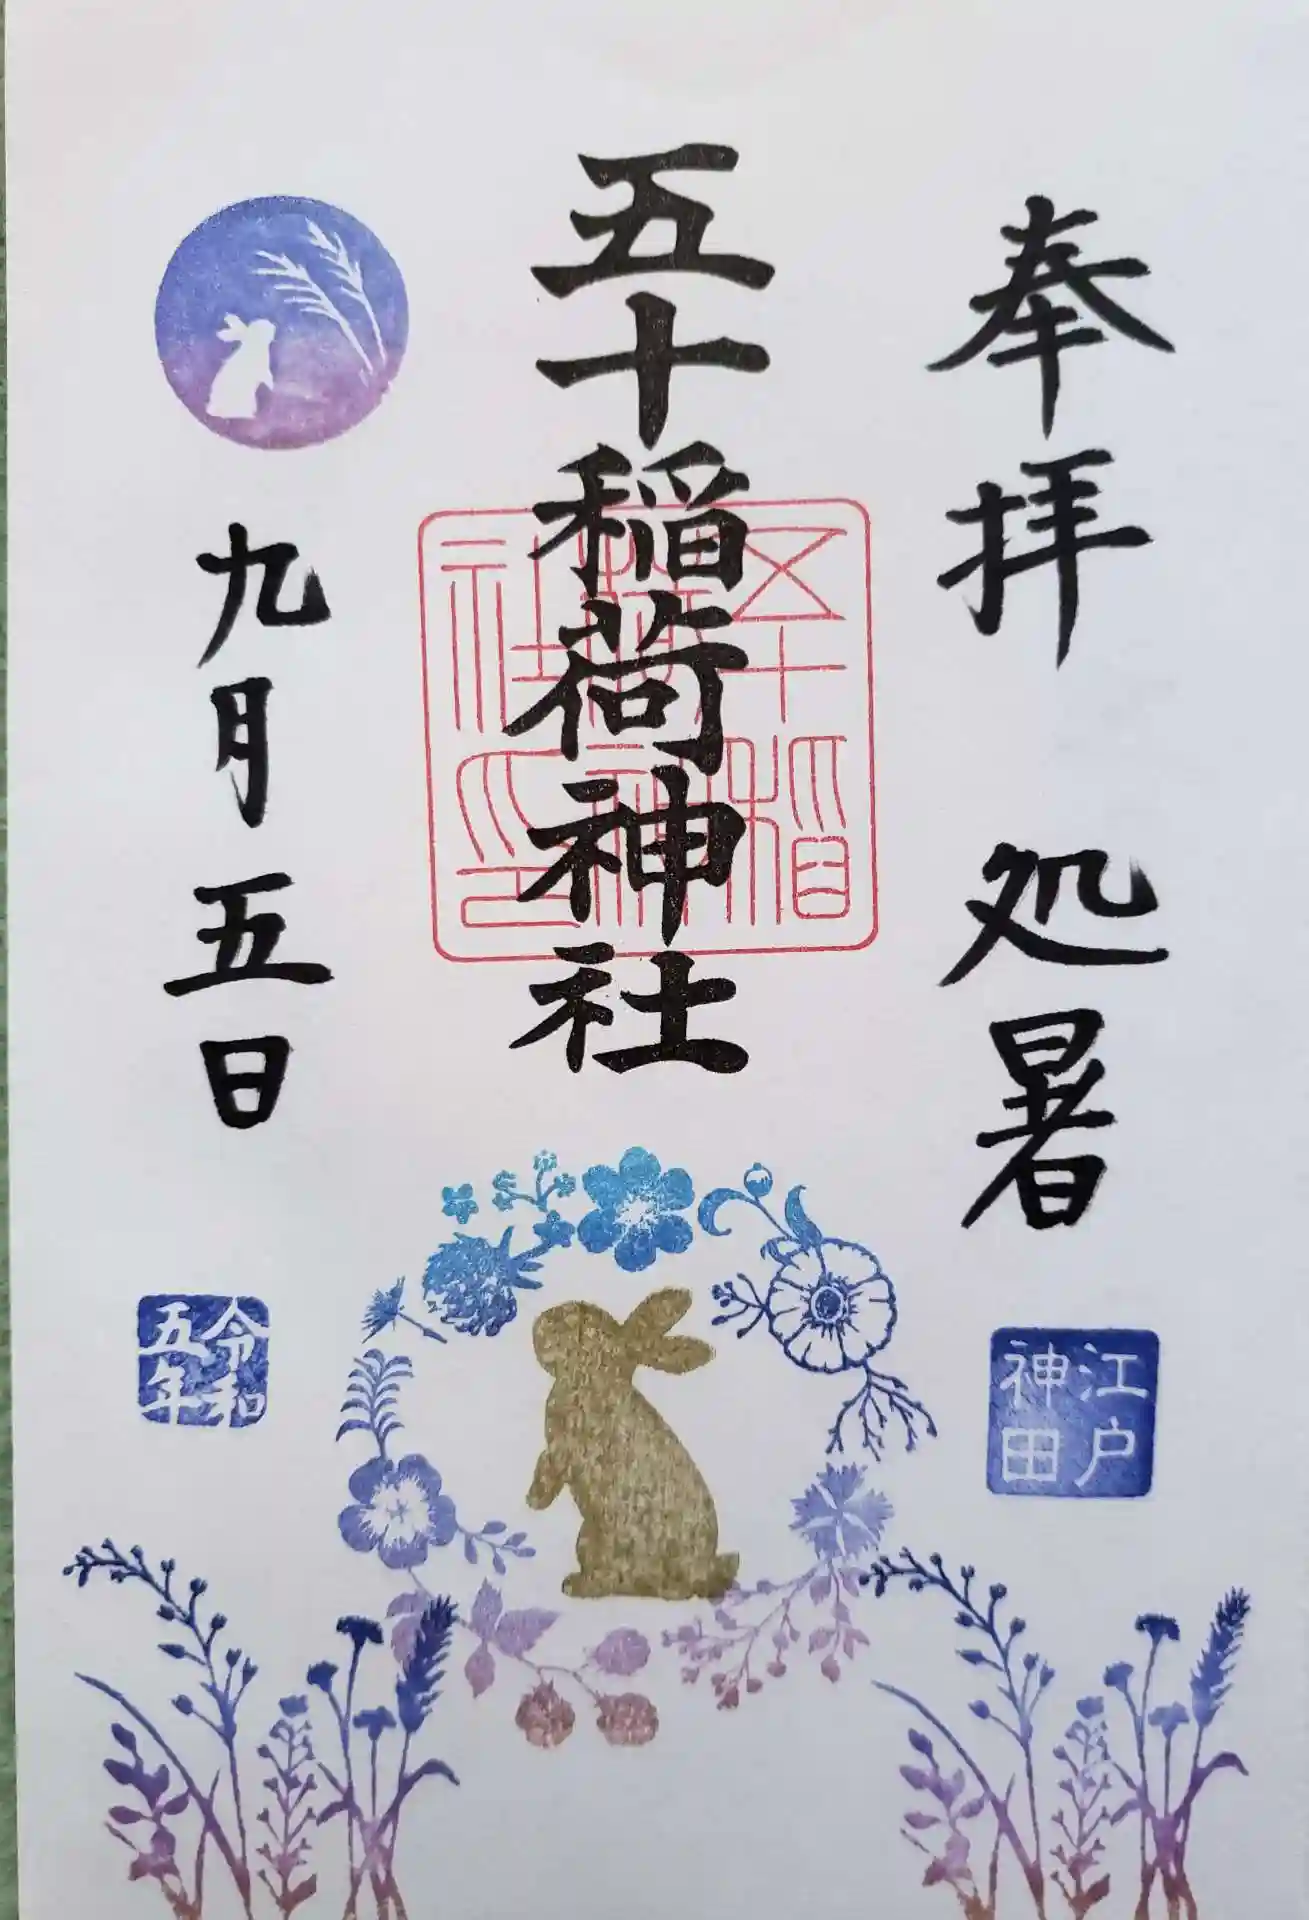 奉拝　処暑
五十稲荷神社
五十稲荷神社印
九月五日
江戸神田
令和五年